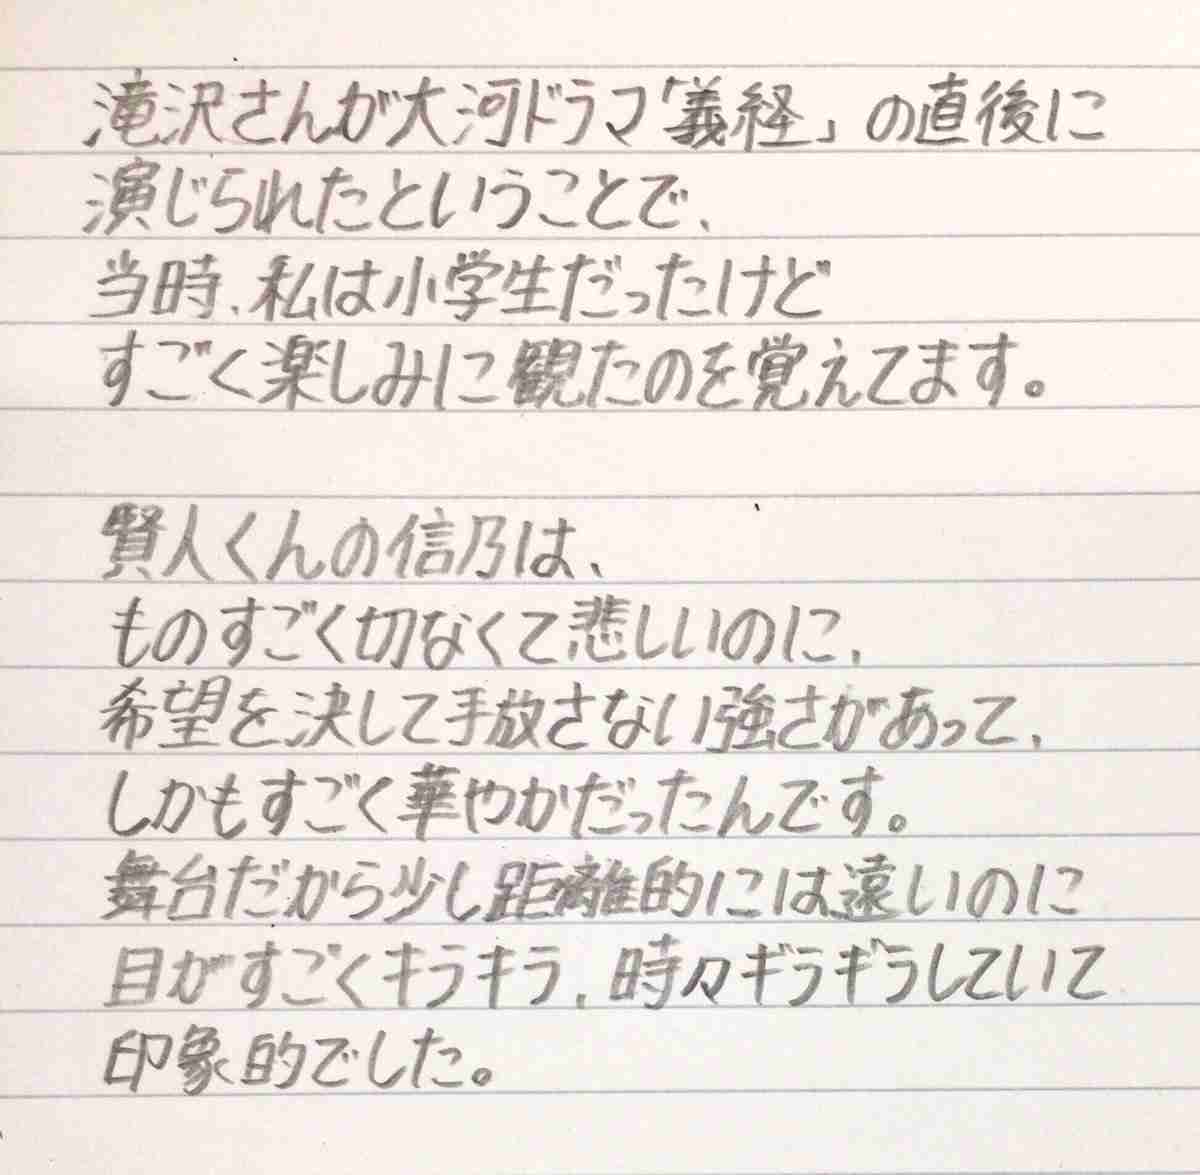 滝沢さんが大河ドラマ「義経」の直後に
演じられたということで、
当時、私は小学生だったけど
すごく楽しみに観たのを覚えてます。
賢人くんの信乃は、
ものすごく切なくて悲しいのに、
希望を決して手放さない強さがあって、
しかもすごく華やかだったんです。
舞台だから少し距離的には遠いのに
目がすごくキラキラ、時々ギラギラしていて
印象的でした。